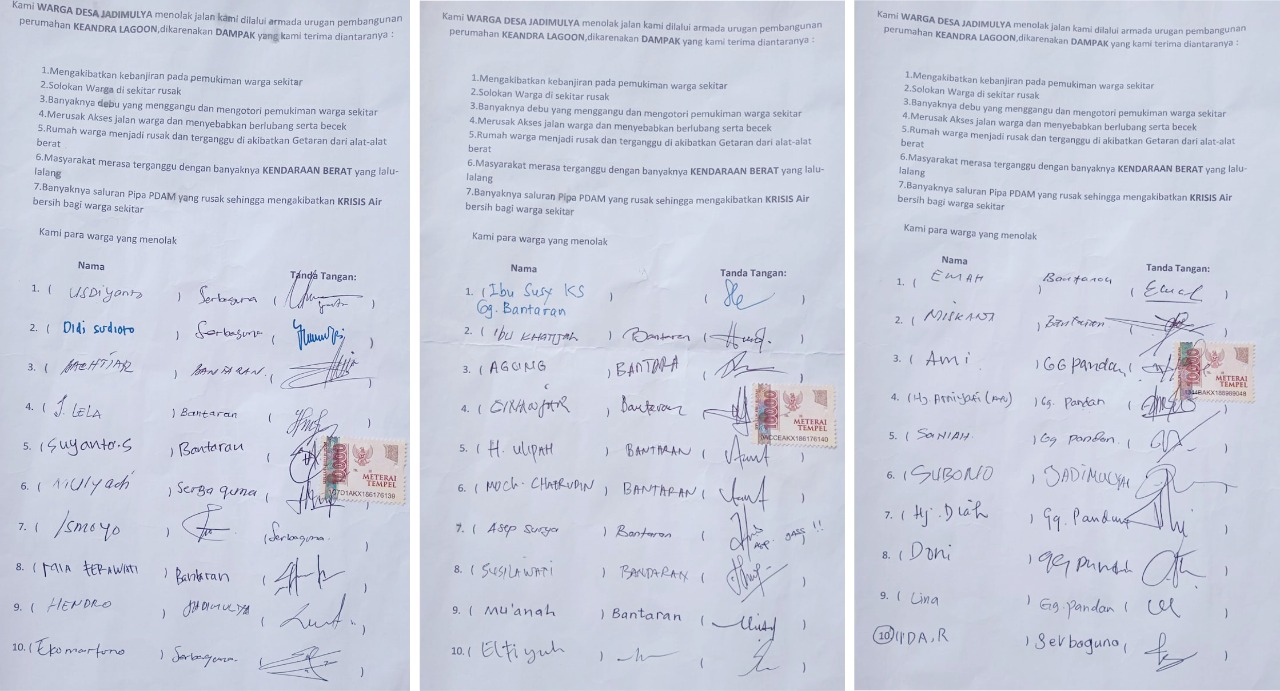 Kami WARGA DESA JADIMULYA menolak jalan kami dilalui armada urugan pembangunan
perumahan KEANDRA LAGOON,dikarenakan DAMPAK yang kami terima diantaranya :
1.Mengakibatkan kebanjiran pada pemukiman warga sekitar
2.Solokan Warga di sekitar rusak
3.Banyaknya debu yang menggangu dan mengotori pemukiman warga sekitar
4.Merusak Akses jalan warga dan menyebabkan berlubang serta becek
5.Rumah warga menjadi rusak dan terganggu di akibatkan Getaran dari alat-alat
berat
6.Masyarakat merasa terganggu dengan banyaknya KENDARAAN BERAT yang lalu-
lalang
7.Banyaknya saluran Pipa PDAM yang rusak sehingga mengakibatkan KRISIS Air
bersih bagi warga sekitar
Kami para warga yang menolak
Nama Tanda Tangan:
1. ( USDiyanto ) Serbaguna ( )
2. ( Didi sudioto ) Serbaguna ( )
3. ( ) BANTARAN ( )
4. ( J. LELA ) Bantaran ( )
5. ( Suyanto.S ) Bantaran (
6. ( ) Serbaguna (
7. ( Ismoyo ) (Serbaguna )
8. ( ) Bantaran ( )
9. ( HENDRO ) JADIMULYA ( )
10. ( Ekomartono ) Serbaguna ( )
10000
METERAI
TEMPEL
Kami WARGA DESA JADIMULYA menolak jalan kami dilalui armada urugan pembangunan
perumahan KEANDRA LAGOON,dikarenakan DAMPAK yang kami terima diantaranya :
1.Mengakibatkan kebanjiran pada pemukiman warga sekitar
2.Solokan Warga di sekitar rusak
3.Banyaknya debu yang menggangu dan mengotori pemukiman warga sekitar
4.Merusak Akses jalan warga dan menyebabkan berlubang serta becek
5.Rumah warga menjadi rusak dan terganggu di akibatkan Getaran dari alat-alat
berat
6.Masyarakat merasa terganggu dengan banyaknya KENDARAAN BERAT yang lalu-
lalang
7.Banyaknya saluran Pipa PDAM yang rusak sehingga mengakibatkan KRISIS Air
bersih bagi warga sekitar
Kami para warga yang menolak
Nama Tanda Tangan:
1. ( Ibu Susy KS ( )
Gg. Bantaran
2. ( IBU KHATIJAH ) Bantaran ( )
3. ( AGUNG ) BANTARA ( )
4. ( GINANJAR ) Bantaran (
5. ( H. ULIPAH ) BANTARAN ( )
6. ( MOCH. CHAERUDIN ) BANTARAN ( )
7. ( Asep Surya ) Bantaran (
8. ( SUSILAWATI ) BANDARAN ( )
9. ( Mu'anah ) Bantaran ( )
10. ( Eltiyuh ) ( )
10000
METERAI
TEMPEL
Kami WARGA DESA JADIMULYA menolak jalan kami dilalui armada urugan pembangunan
perumahan KEANDRA LAGOON,dikarenakan DAMPAK yang kami terima diantaranya :
1.Mengakibatkan kebanjiran pada pemukiman warga sekitar
2.Solokan Warga di sekitar rusak
3.Banyaknya debu yang menggangu dan mengotori pemukiman warga sekitar
4.Merusak Akses jalan warga dan menyebabkan berlubang serta becek
5.Rumah warga menjadi rusak dan terganggu di akibatkan Getaran dari alat-alat
berat
6.Masyarakat merasa terganggu dengan banyaknya KENDARAAN BERAT yang lalu-
lalang
7.Banyaknya saluran Pipa PDAM yang rusak sehingga mengakibatkan KRISIS Air
bersih bagi warga sekitar
Kami para warga yang menolak
Nama Tanda Tangan:
1. ( EMAH ) Bantaran ( )
2. ( ) Bantaran ( )
3. ( Ami ) GG pandan (
4. (Hj. ) Gg. Pandan (
5. ( SANIAH ) Gg pandan ( )
6. ( SUBONO ) JADIMULYA ( )
7. ( Hj. Diah ) Gg. Pandan )
8. ( Doni ) gg pandan ( )
9. ( Lina ) Gg. pandan ( )
10. IDA, R ) Serbaguna ( )
10000
METERAI
TEMPEL